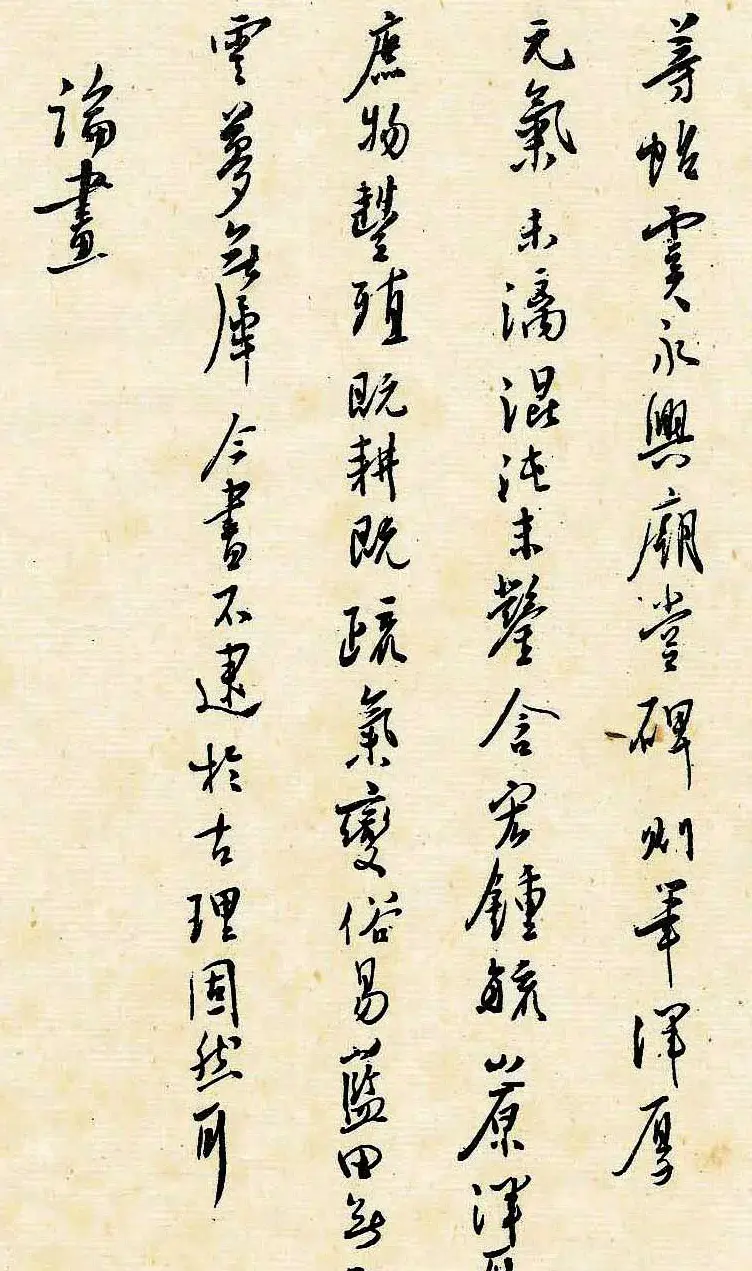 等帖虞永興廟堂碑則筆渾厚
元氣未漓混沌未鑿含宏鍾毓山原渾
庶物豐殖既耕既疏氣變俗易藍田無
雲夢無犀今書不逮於古理固然耳
論畫